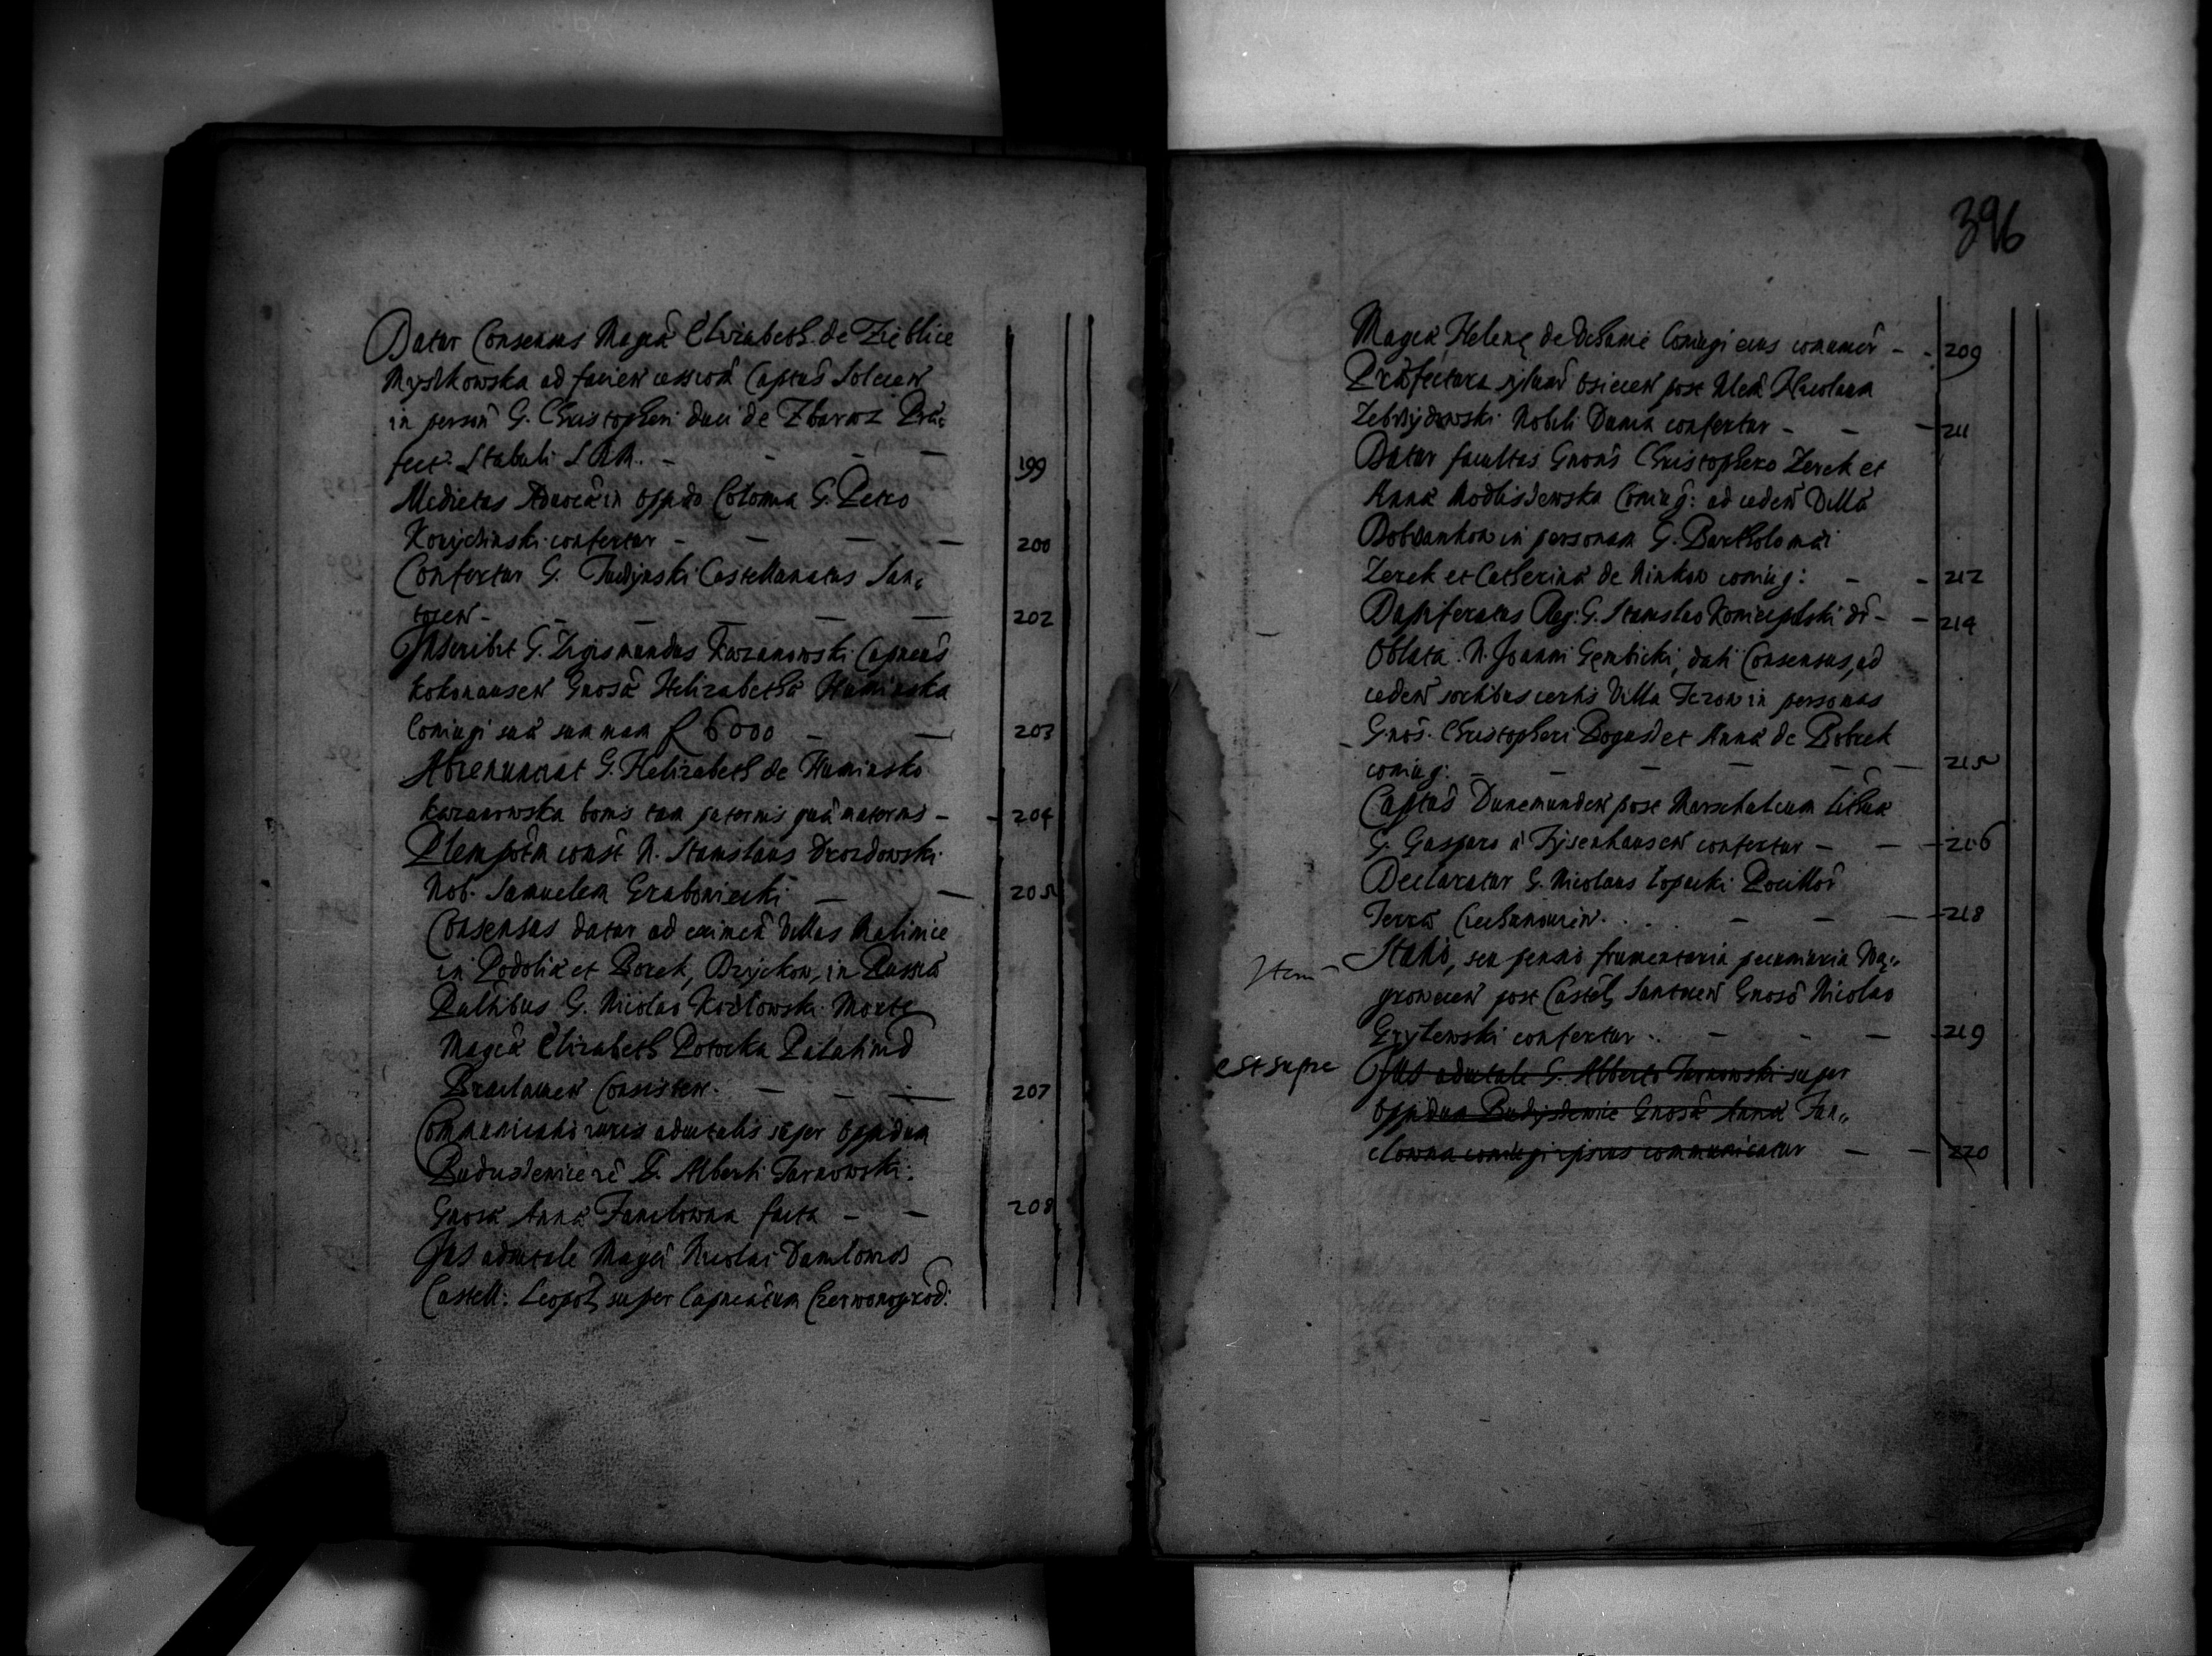 Datur Consensus Magcae Elizabeth de Zięblice
Myszkowska ad faciend cessione Captus Solecen
in person G. Christopheri duci de Zbaraz Prae-
fect: Stabuli S R M. - - - - 199
Medietas Advocae in oppdo Colomia G. Petro
Konychinski confertur - - - - 200
Confertur G. Judynski Castellanatus San-
tocen - - - - - 202
Inscribit G. Zigismundus Kazanowski Capneus
Kokonausen Gnosae Helizabetha Huminska
Coniugi suae summam f 6000 - - 203
Abrenunciat G. Helizabeth de Huminsko
Kazanowska bonis tam paternis qua maternis - - 204
Plenipotm const N. Stanislaus Drozdowski
Nob. Samuelem Graboniecki - - 205
Consensus datur ad eximen Villas Malinice
in Podolia et Borek, Dzyckow, in Russia
Paltibus G. Nicolao Kozlowski Morte
Magca Elizabeth Potocka Palatind
Braclamen Consisten. - - - 207
Communicatio iuris advitalis super oppidum
Budzislewice re G. Alberti Jarnowski:
Gnosae Anna Fanclowna facta - - 208
Jus advitale Magci Nicolai Danilowicz
Castell: Leopol super Capneatum Czerwonogrod:
396
Magca Helenę de Uchanie Coniugi eius commun - - 209
Praefectura sylvar Osiecen post Alea Nicolaum
Zebrzydowski Nobili Dunia confertur - - - 211
Datur facultas Gnons Christophero Zerek et
Anna Modliszewska Coniug: ad ceden Villa
Dobrankow in personam G. Bartholomaei
Zerek et Catherina de Minkow coniug: - - 212
Dapiferatus Reg: G. Stanislao Koniecpolski dr - - 214
Oblata. N. Joanni Gembicki, dati Consensus, ad
ceden sortibus certis Villa Jezow in personas
Gnos. Christopheri Bogusz et Anna de Bobrek
coniug: - - - - - - 215
Captus Dunemunden post Marschalcum Lithua
G. Gasparo a Tysenhausen confertur - - - 216
Declaratur G. Nicolaus Lopacki Pocillor
Terrae Ciechanovien. . . - - - 218
Item - Statio, seu pensio frumentaria pecuniaria Wą-
growecen post Castel Santocen Gnoso Nicolao
Gryzewski confertur . - - - 219
est supra Jus advitale G. Alberto Jarnowski super
Oppidum Budzyslewice Gnosae Anna Fan-
clowna coniugi ipsius communicatur - - 220